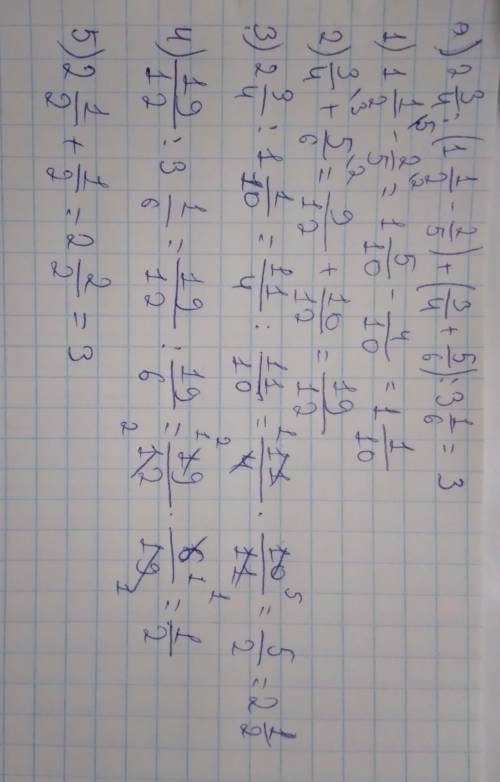 а) 2 3/4 : (1 1/2 - 2/5) + (3/4 + 5/6) : 3 1/6 = 3
1) 1 1/2 ⁵ - 2/5 ² = 1 5/10 - 4/10 = 1 1/10
2) 3/4 ³ + 5/6 ² = 9/12 + 10/12 = 19/12
3) 2 3/4 : 1 1/10 = 11/4 : 11/10 = 11/4 · 10/11 = 5/2 = 2 1/2
4) 19/12 : 3 1/6 = 19/12 : 19/6 = 19/12 · 6/19 = 1/2
5) 2 1/2 + 1/2 = 2 2/2 = 3